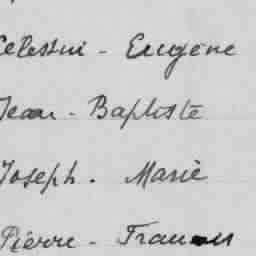 Celestin - Eugène
Jean - Baptiste
Joseph - Marie
Pierre - Francois